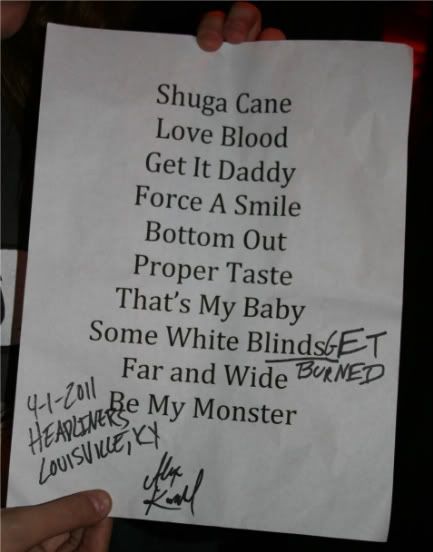 Shuga Cane
Love Blood
Get It Daddy
Force A Smile
Bottom Out
Proper Taste
That's My Baby
Some White Blinds GET
BURNED
Far and Wide
Be My Monster
4-1-2011
HEADLINERS
LOUISVILLE, KY
Alex